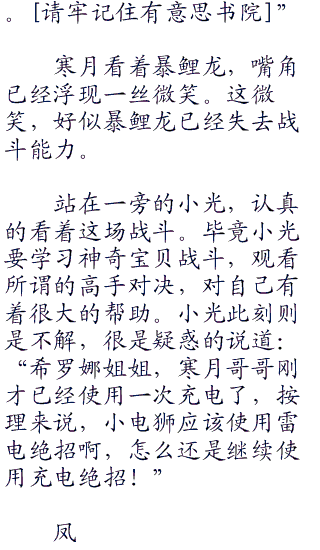 。[请牢记住有意思书院]”
寒月看着暴鲤龙，嘴角
已经浮现一丝微笑。这微
笑，好似暴鲤龙已经失去战
斗能力。
站在一旁的小光，认真
的看着这场战斗。毕竟小光
要学习神奇宝贝战斗，观看
所谓的高手对决，对自己有
着很大的帮助。小光此刻则
是不解，很是疑惑的说道：
“希罗娜姐姐，寒月哥哥刚
才已经使用一次充电了，按
理来说，小电狮应该使用雷
电绝招啊，怎么还是继续使
用充电绝招！”
凤